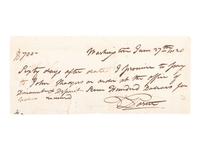 $700— Washington June 27th 1820
Sixty days after date I promise to pay
to John or order at the office of
Discount & Deposit Seven Hundred Dollars for
value received
D. Porter